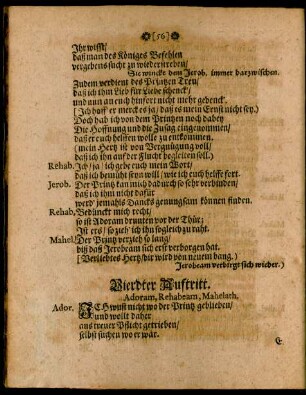 [56]
Ihr wisst/
daß man des Königes Befehlen
vergebens sucht zu wiederstreben/
Sie winckt dem Jerob. immer darzwischen.
Zudem verdient des Printzen Treu/
daß ich ihm Lieb für Liebe schenck/
und nun an euch hinfort nicht mehr gedenck.
(Ich hoff er merck es ja/ daß es mein Ernst nicht sey.)
Doch hab ich von dem Printzen noch dabey
Die Hoffnung und die Zusag eingenommen/
daß er euch helffen wolle zu entkommen.
(mein Hertz ist von Vergnügung voll/
daß ich ihn auf der Flucht begleiten soll.)
Rehab. Ich/ ja/ ich gebe euch mein Wort/
daß ich bemüht seyn will/ wie ich euch helffe fort.
Jerob. Der Printz kan mich dadurch so sehr verbinden/
daß ich ihm nicht dafür
werd jemahls Dancks genung sum können finden.
Rehab. Bedünckt mich recht/
so ist Adoram drunten vor der Thür;
Ist ers/ so zieh ich ihn sogleich zu rath.
Mahel. Der Printz verzieh so lang/
biß daß Jerobeam sich erst verborgen hat.
(Verliebtes Hertz/ dir wird von neuem bang.)
Jerobeam verbirgt sich wieder.)
Vierdter Auftritt.
Adoram, Rehabeam, Mahelath.
Ador. ICH wust nicht wo der Printz geblieben/
und wollt daher
aus treuer Pflicht getrieben/
selbst suchen wo er wär.